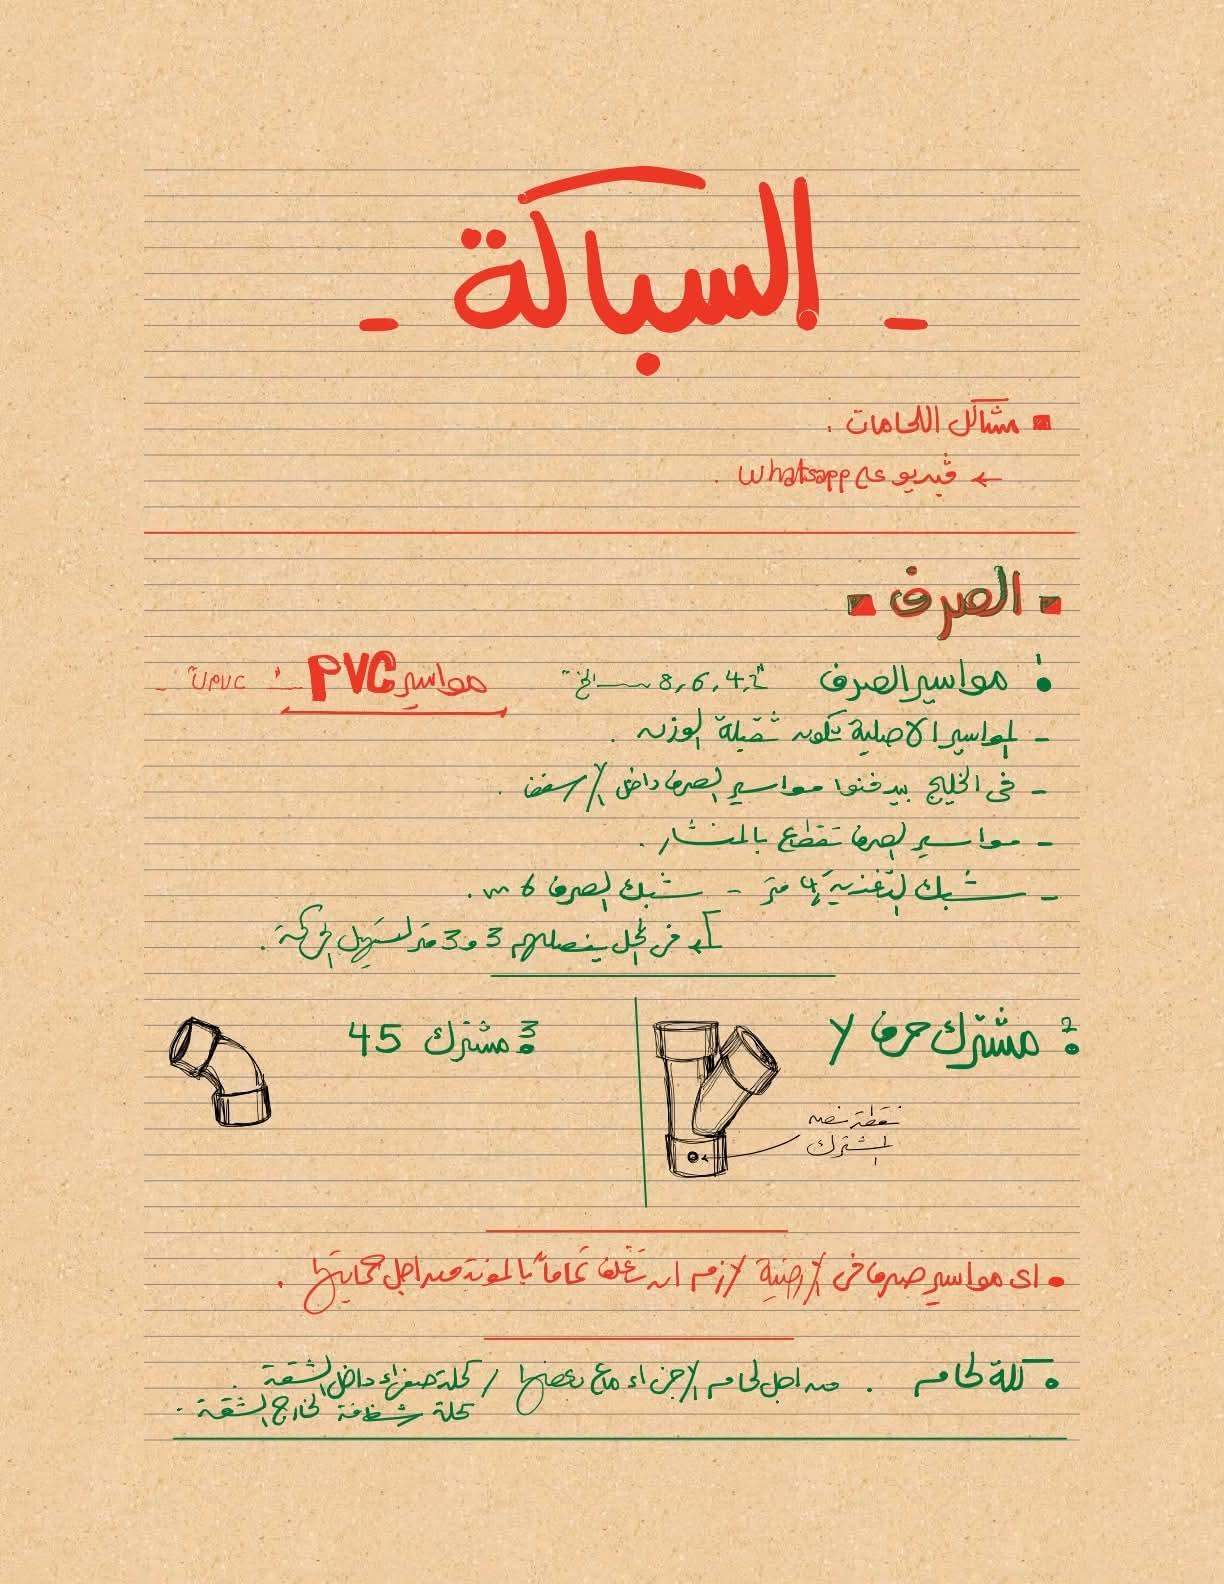 - السباكة -
مشاكل اللحامات .
← فيديو على Whatsapp .
الصرف
1 مواسير الصرف 2,4,6,8 — الخ" مواسير PVC — "UPVC" -
- المواسير الاصلية تكون ثقيلة الوزن .
- فى الخليج بيدفنوا مواسير الصرف داخل الاسقف .
- مواسير الصرف تقطع بالمنشار .
- شبك التغذية 4 متر - شبك الصرف 6 m .
فى المحل يفصلهم 3 و 3 متر لتسهيل الحركة .
2 مشترك حرف Y
3 مشترك 45
نقطة نصف
المشترك
• اى مواسير صرف فى الارضية لازم ان تغلف تماماً بالمونة من اجل حمايتها .
كلة لحام . من اجل لحام الاجزاء مع بعضها / كلة صفراء داخل الشقة .
كلة شفافة لخارج الشقة .